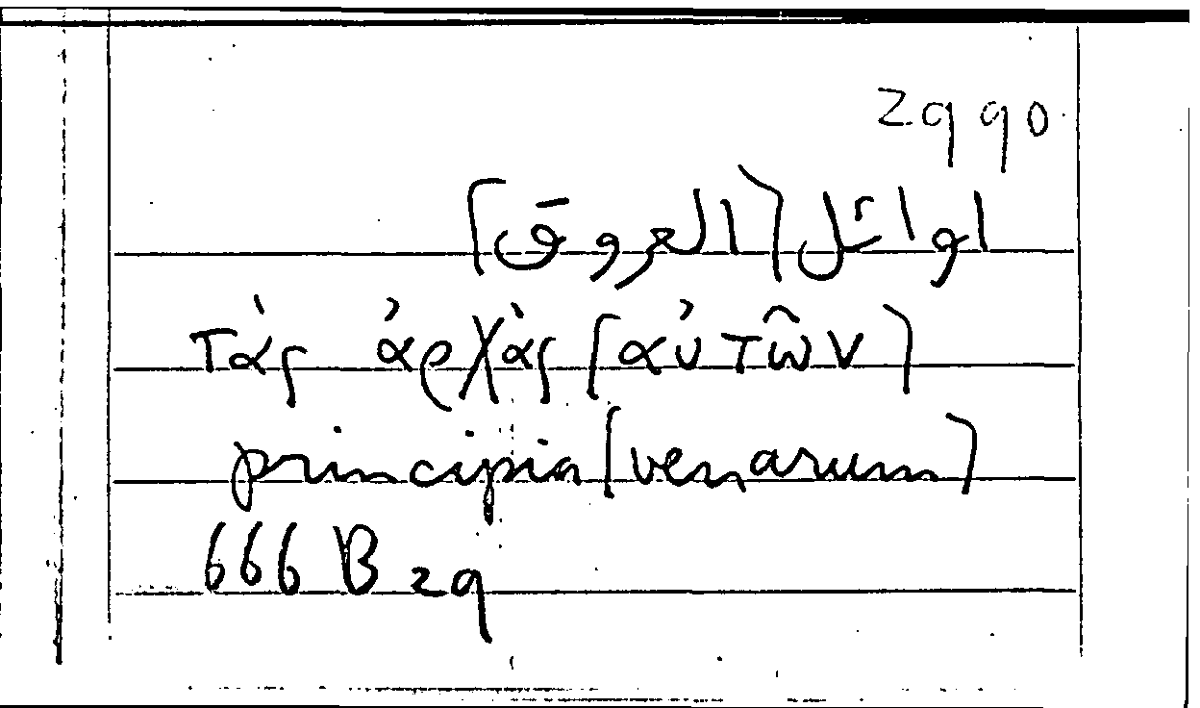 zq 90
اوائل [العروق]
τὰς ἀρχὰς [αὐτῶν]
principia [venarum]
666 B zq